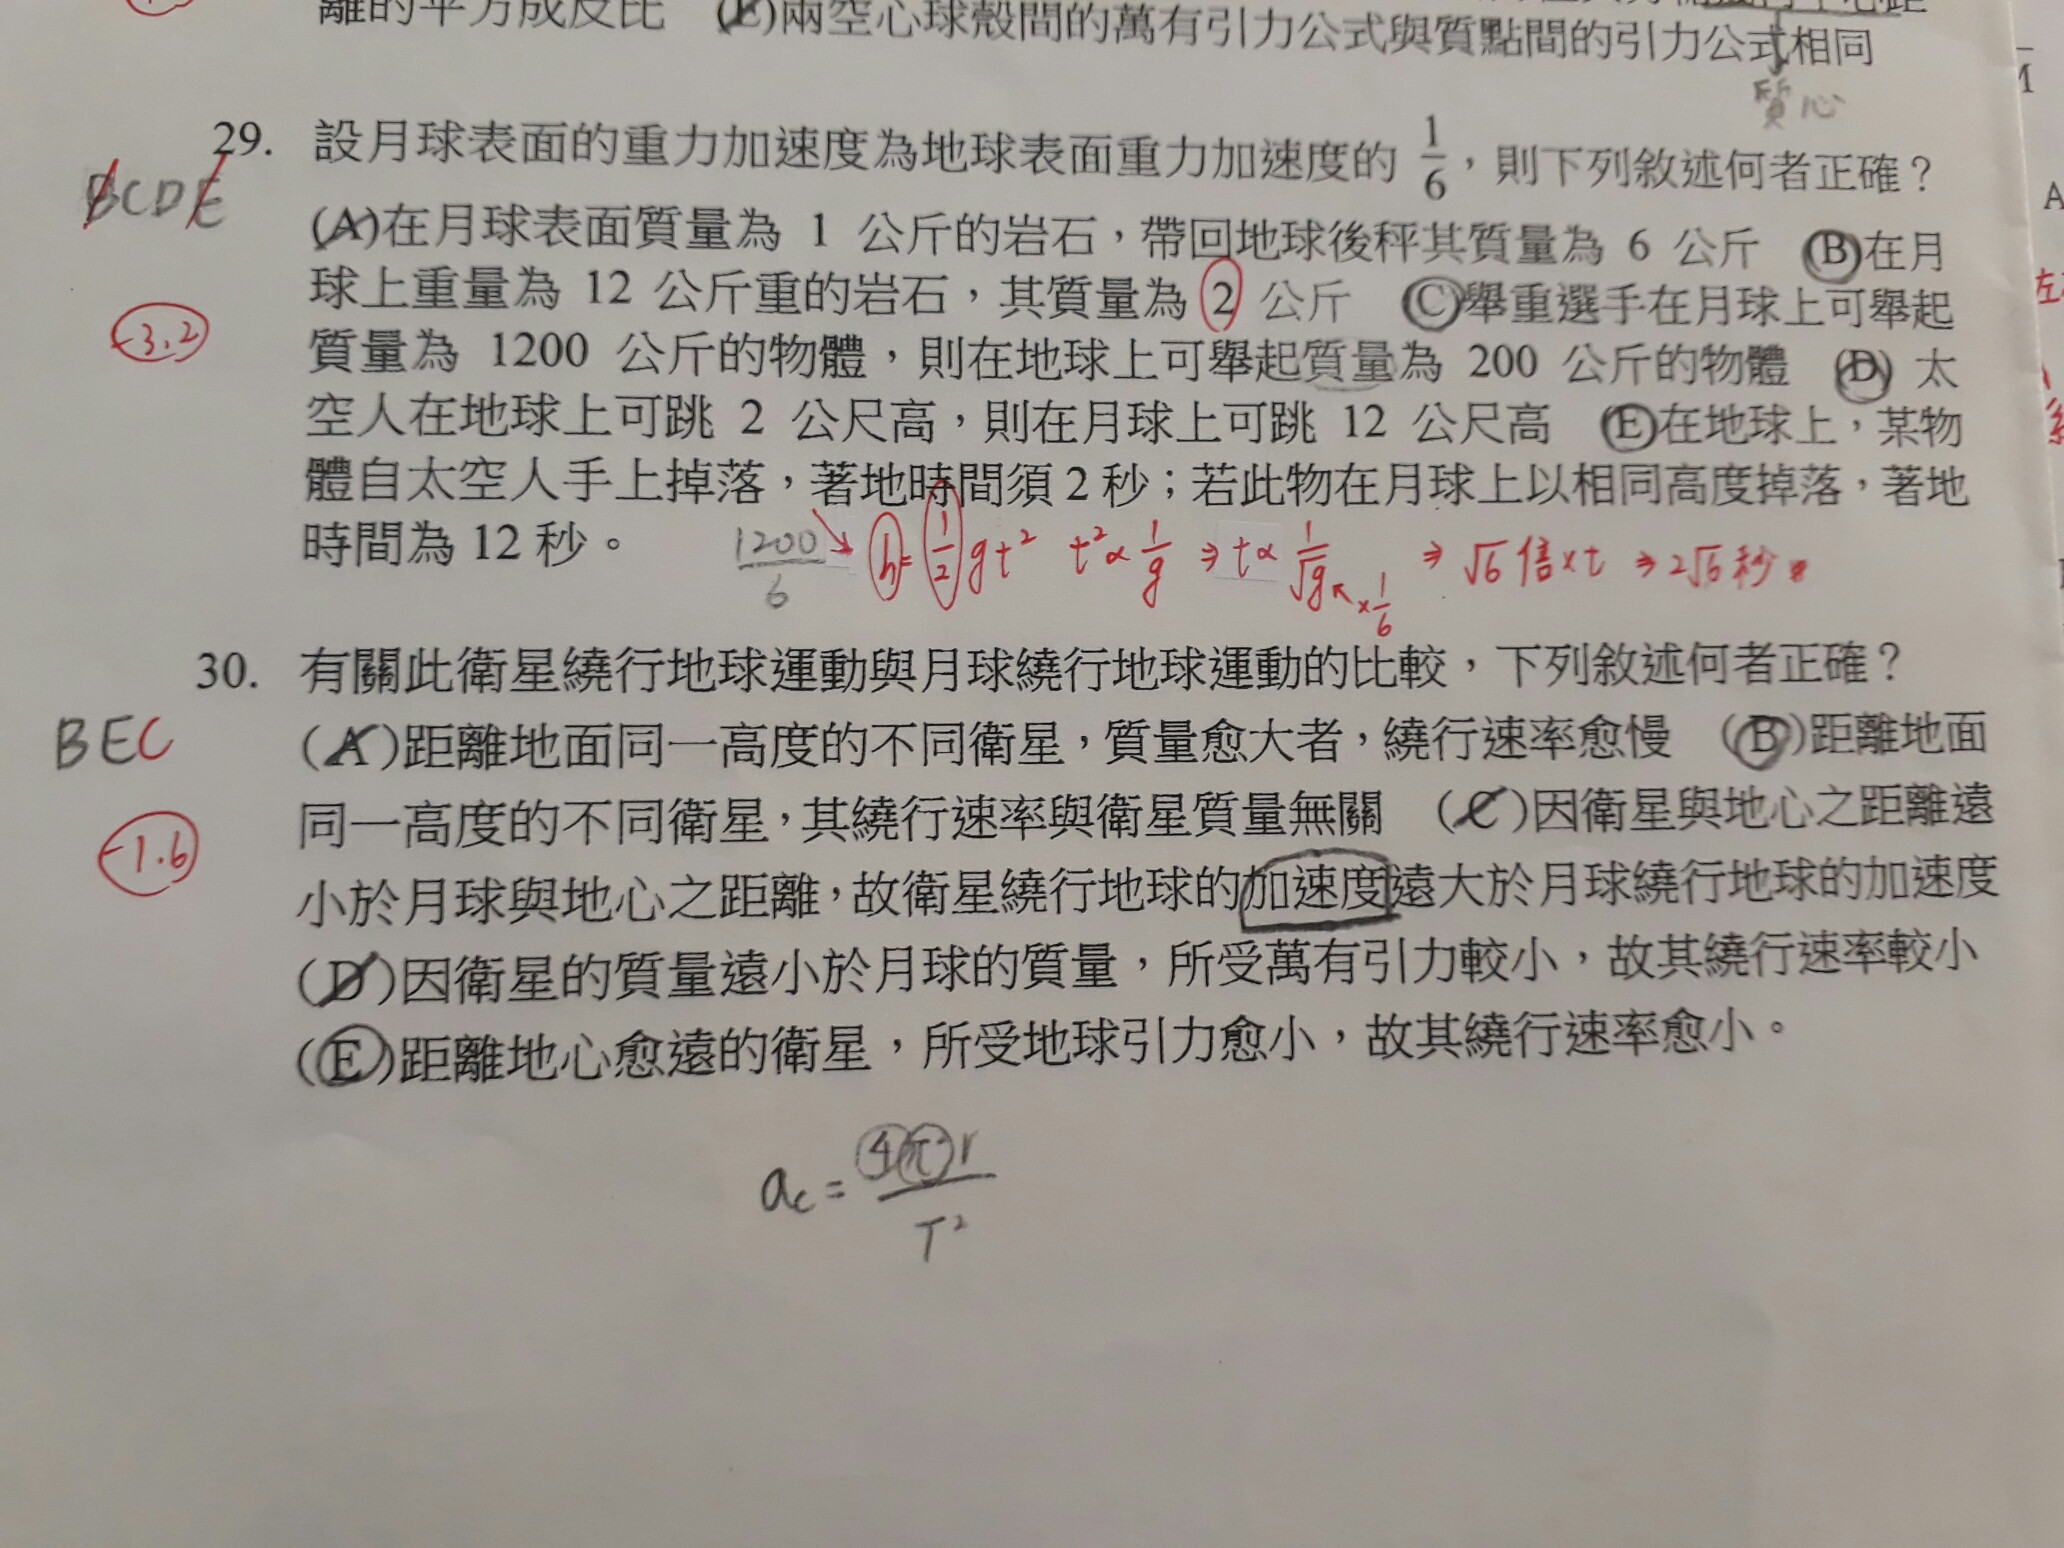 離的平方成反比 (E)兩空心球殼間的萬有引力公式與質點間的引力公式相同
質心
29. 設月球表面的重力加速度為地球表面重力加速度的 1/6，則下列敘述何者正確？
BCDE
(A)在月球表面質量為 1 公斤的岩石，帶回地球後秤其質量為 6 公斤 (B)在月
球上重量為 12 公斤重的岩石，其質量為 2 公斤 (C)舉重選手在月球上可舉起
-3.2
質量為 1200 公斤的物體，則在地球上可舉起質量為 200 公斤的物體 (D) 太
空人在地球上可跳 2 公尺高，則在月球上可跳 12 公尺高 (E)在地球上，某物
體自太空人手上掉落，著地時間須 2 秒；若此物在月球上以相同高度掉落，著地
時間為 12 秒。
1200/6 h=1/2 gt² t²∝1/g ⇒ t∝1/√g ×1/6 ⇒ √6倍×t ⇒ 2√6秒
30. 有關此衛星繞行地球運動與月球繞行地球運動的比較，下列敘述何者正確？
BEC
(A)距離地面同一高度的不同衛星，質量愈大者，繞行速率愈慢 (B)距離地面
同一高度的不同衛星，其繞行速率與衛星質量無關 (C)因衛星與地心之距離遠
-1.6
小於月球與地心之距離，故衛星繞行地球的加速度遠大於月球繞行地球的加速度
(D)因衛星的質量遠小於月球的質量，所受萬有引力較小，故其繞行速率較小
(E)距離地心愈遠的衛星，所受地球引力愈小，故其繞行速率愈小。
ac=4π²r/T²